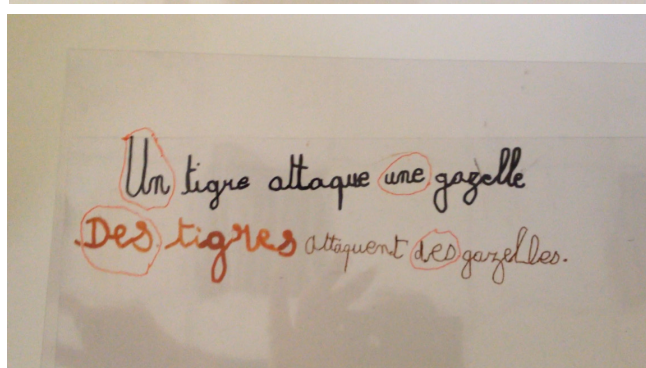 Un tigre attaque une gazelle
.Des tigres attaquent des gazelles.